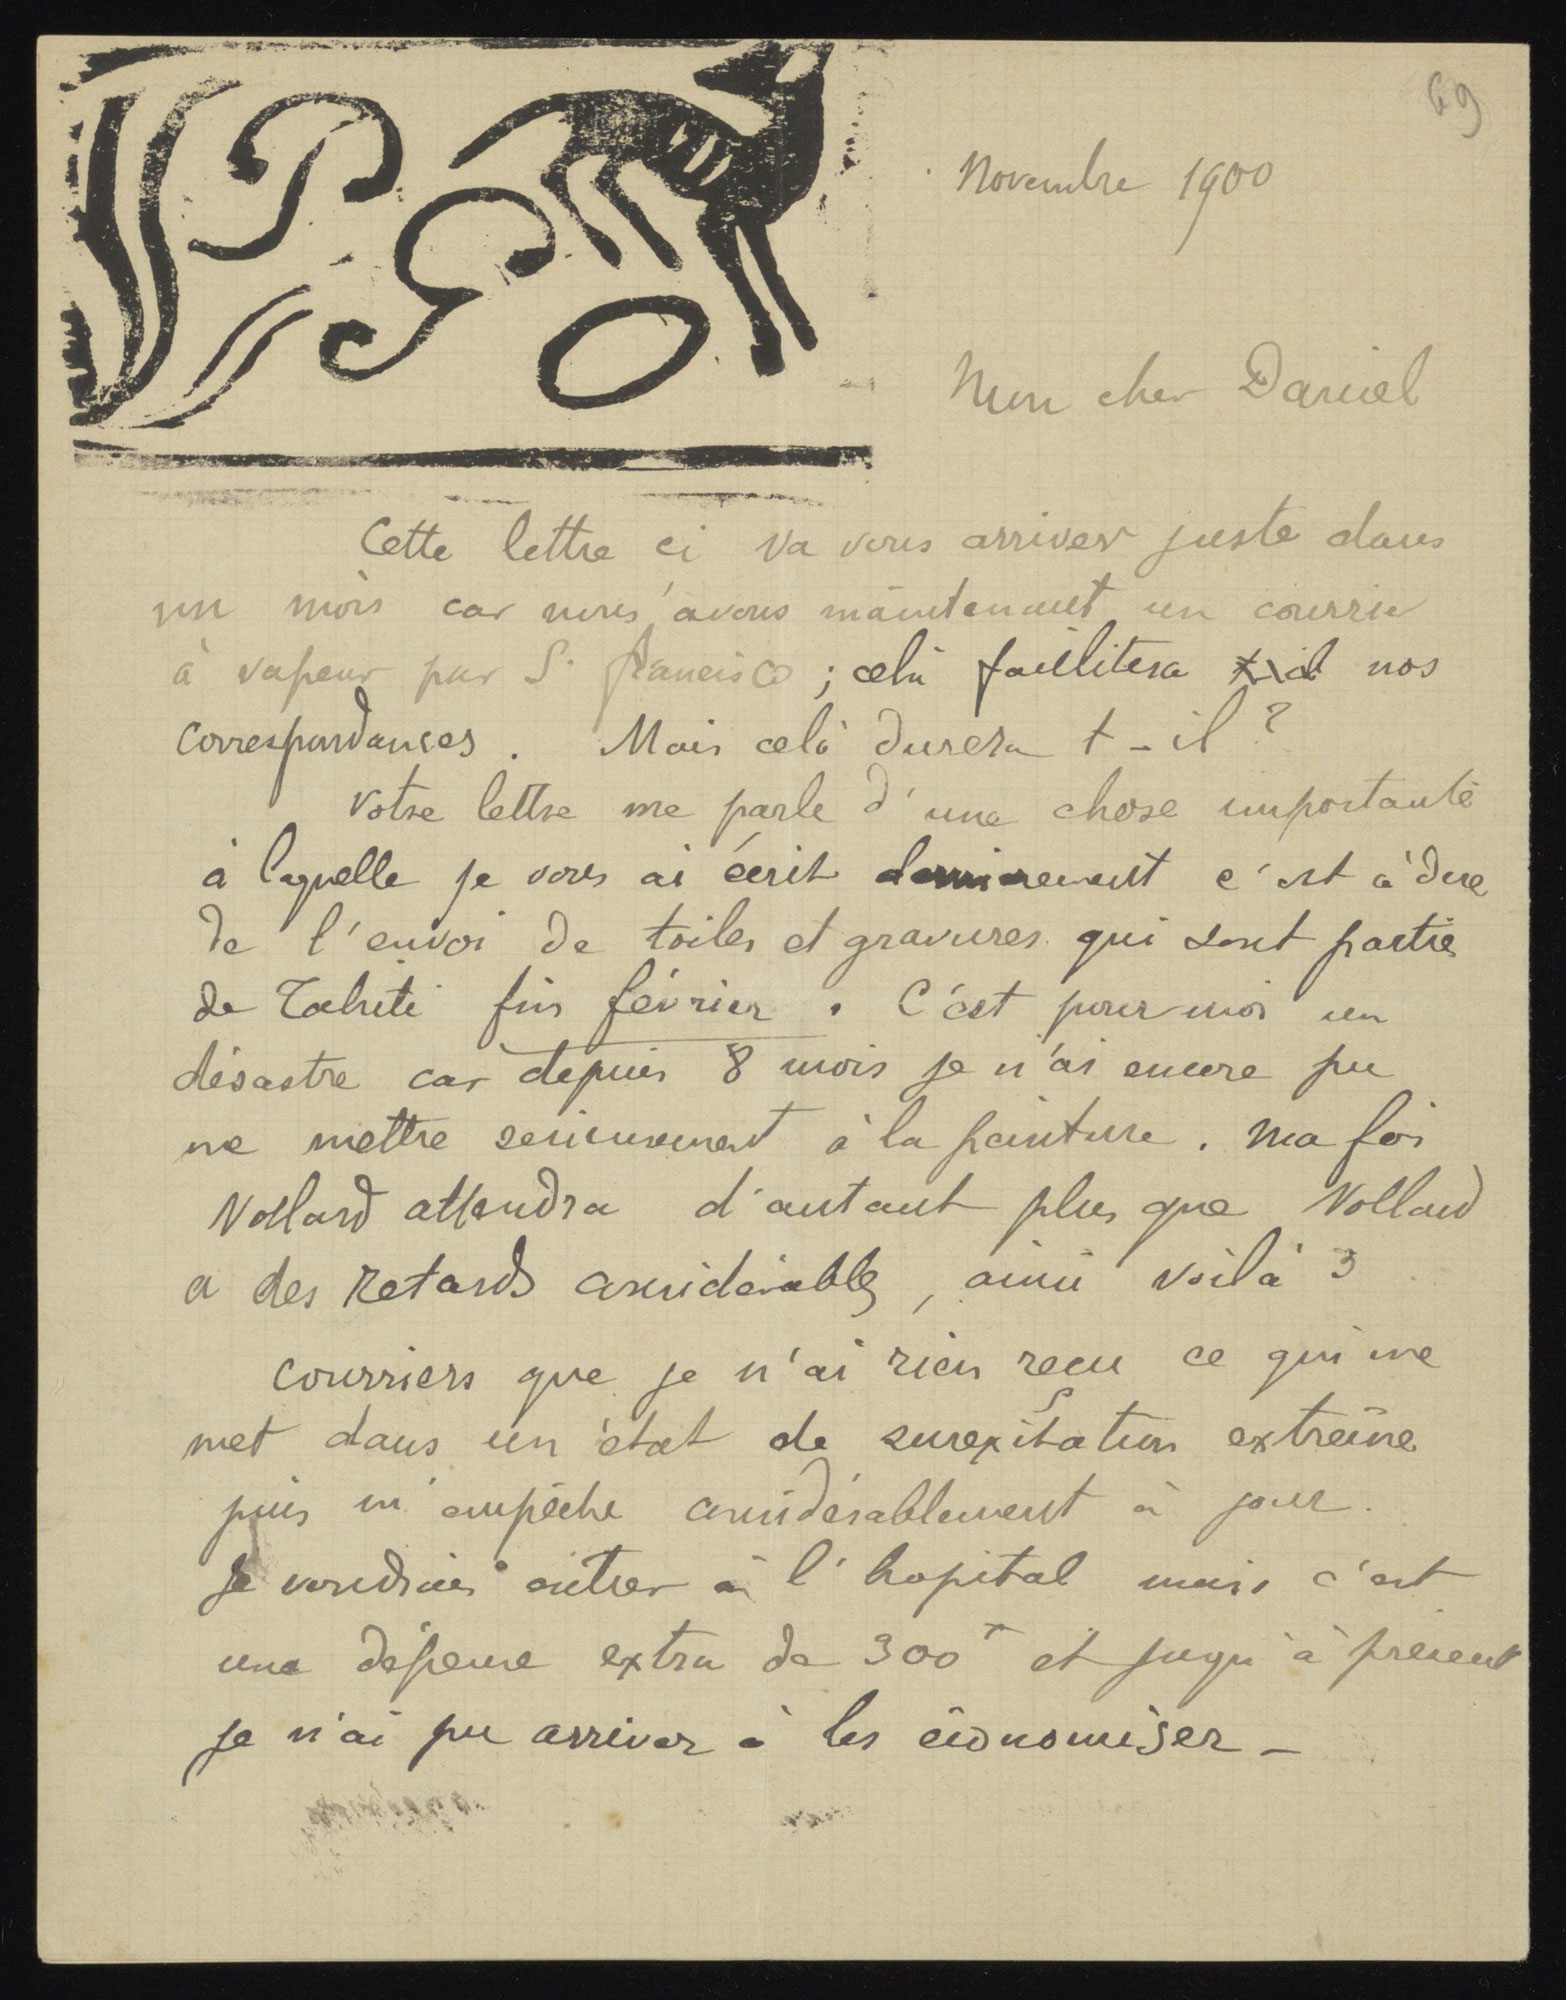 69
PGO
Novembre 1900
Mon cher Daniel
Cette lettre ci va vous arriver juste dans
un mois car nous avons maintenant un courrier
à vapeur par S. Francisco ; celà facilitera nos
correspondances . Mais celà durera t - il ?
Votre lettre me parle d'une chose importante
à laquelle je vous ai écrit dernierement c'est à dire
de l'envoi de toiles et gravures qui sont partis
de Tahiti fin février . C'est pour moi un
désastre car depuis 8 mois je n'ai encore pu
me mettre serieusement à la peinture . Ma foi
Vollard attendra d'autant plus que Vollard
a des retards considérables , ainsi voilà 3
courriers que je n'ai rien reçu ce qui me
met dans un état de surexitation extrême
puis m'empêche considérablement à jour .
Je voudrais entrer à l'hopital mais c'est
une dépense extra de 300f et jusqu'à présent
je n'ai pu arriver à les économiser _